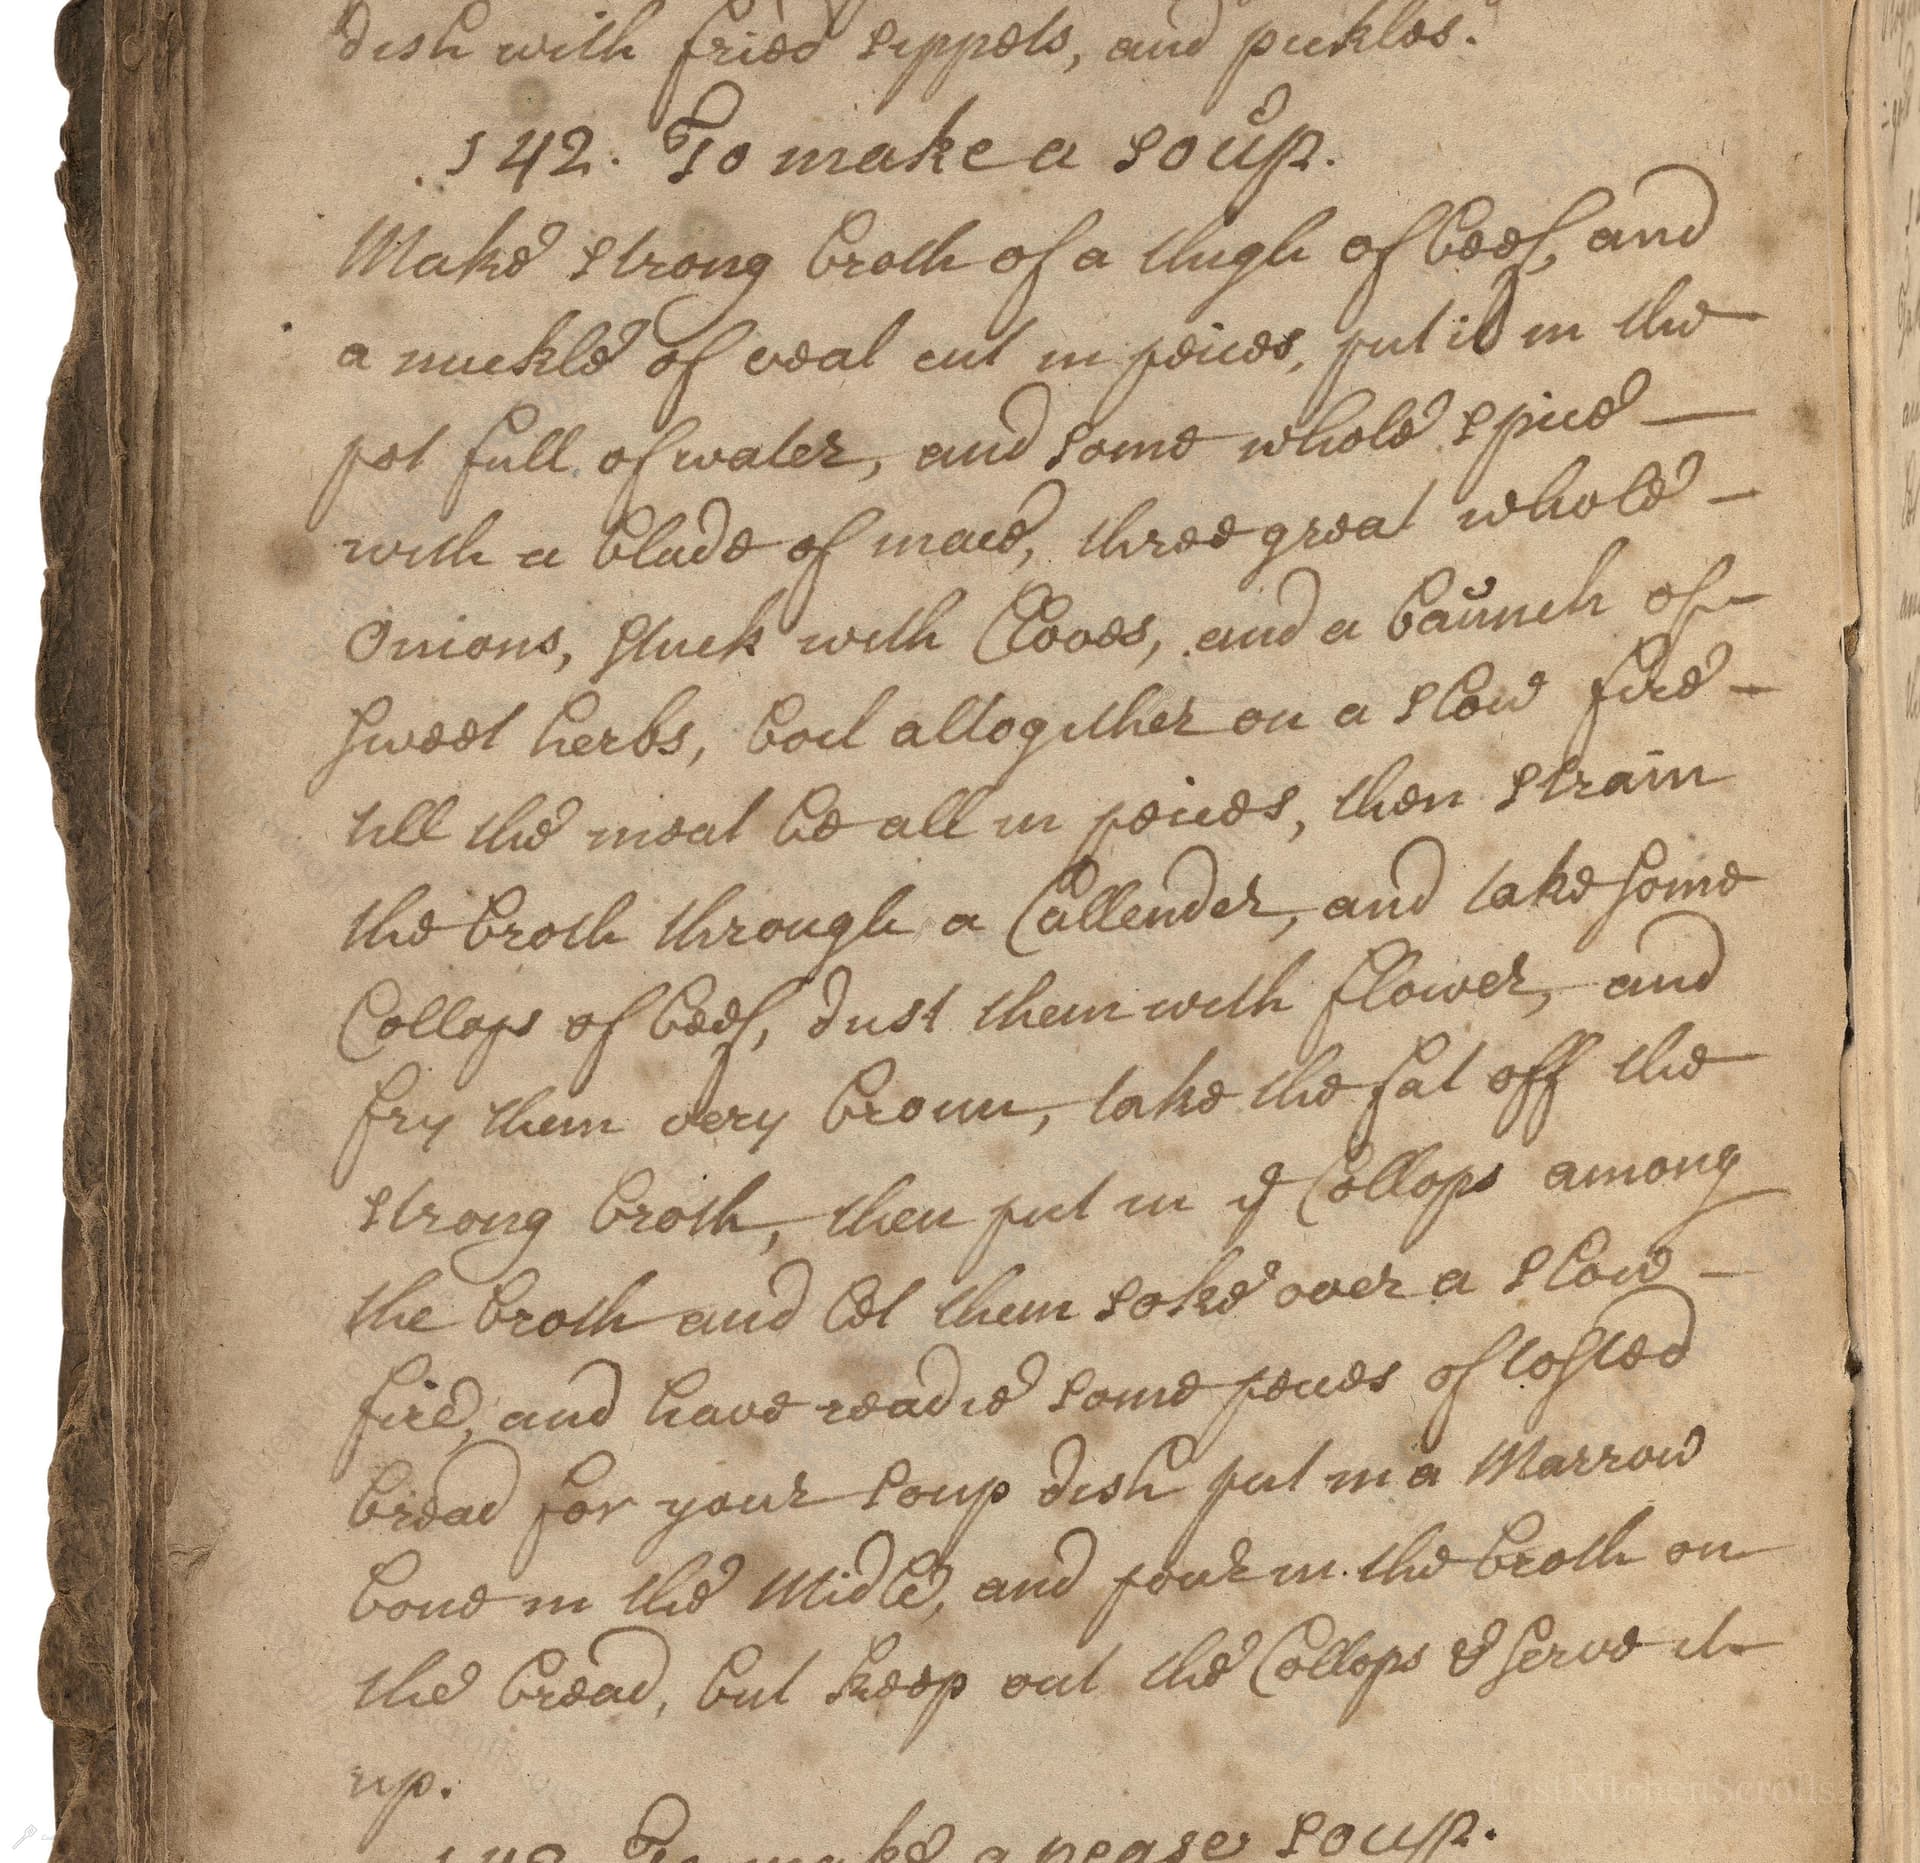 dish with fried sippets, and pickles.
142. To make a soup.
Make strong broth of a thigh of beef, and
a nuckle of veal cut in peices, put it in the
pot full of water, and some whole spice —
with a blade of mace, three great whole —
Onions, stuck with Cloves, and a baunch of —
sweet herbs, boil altogither on a slow fire —
till the meat be all in peices, then strain
the broth through a Callender, and take some
Collops of beef, dust them with flower, and
fry them very broun, take the fat off the
strong broth, then put in ye Collops among
the broth and let them soke over a slow —
fire, and have readie some peices of tosted
bread for your soup dish put in a Marrow
bone in the Midle, and pour in the broth on
the bread, but keep out the Collops & serve it
up.
To make a pease soup.
LostKitchenScrolls.org